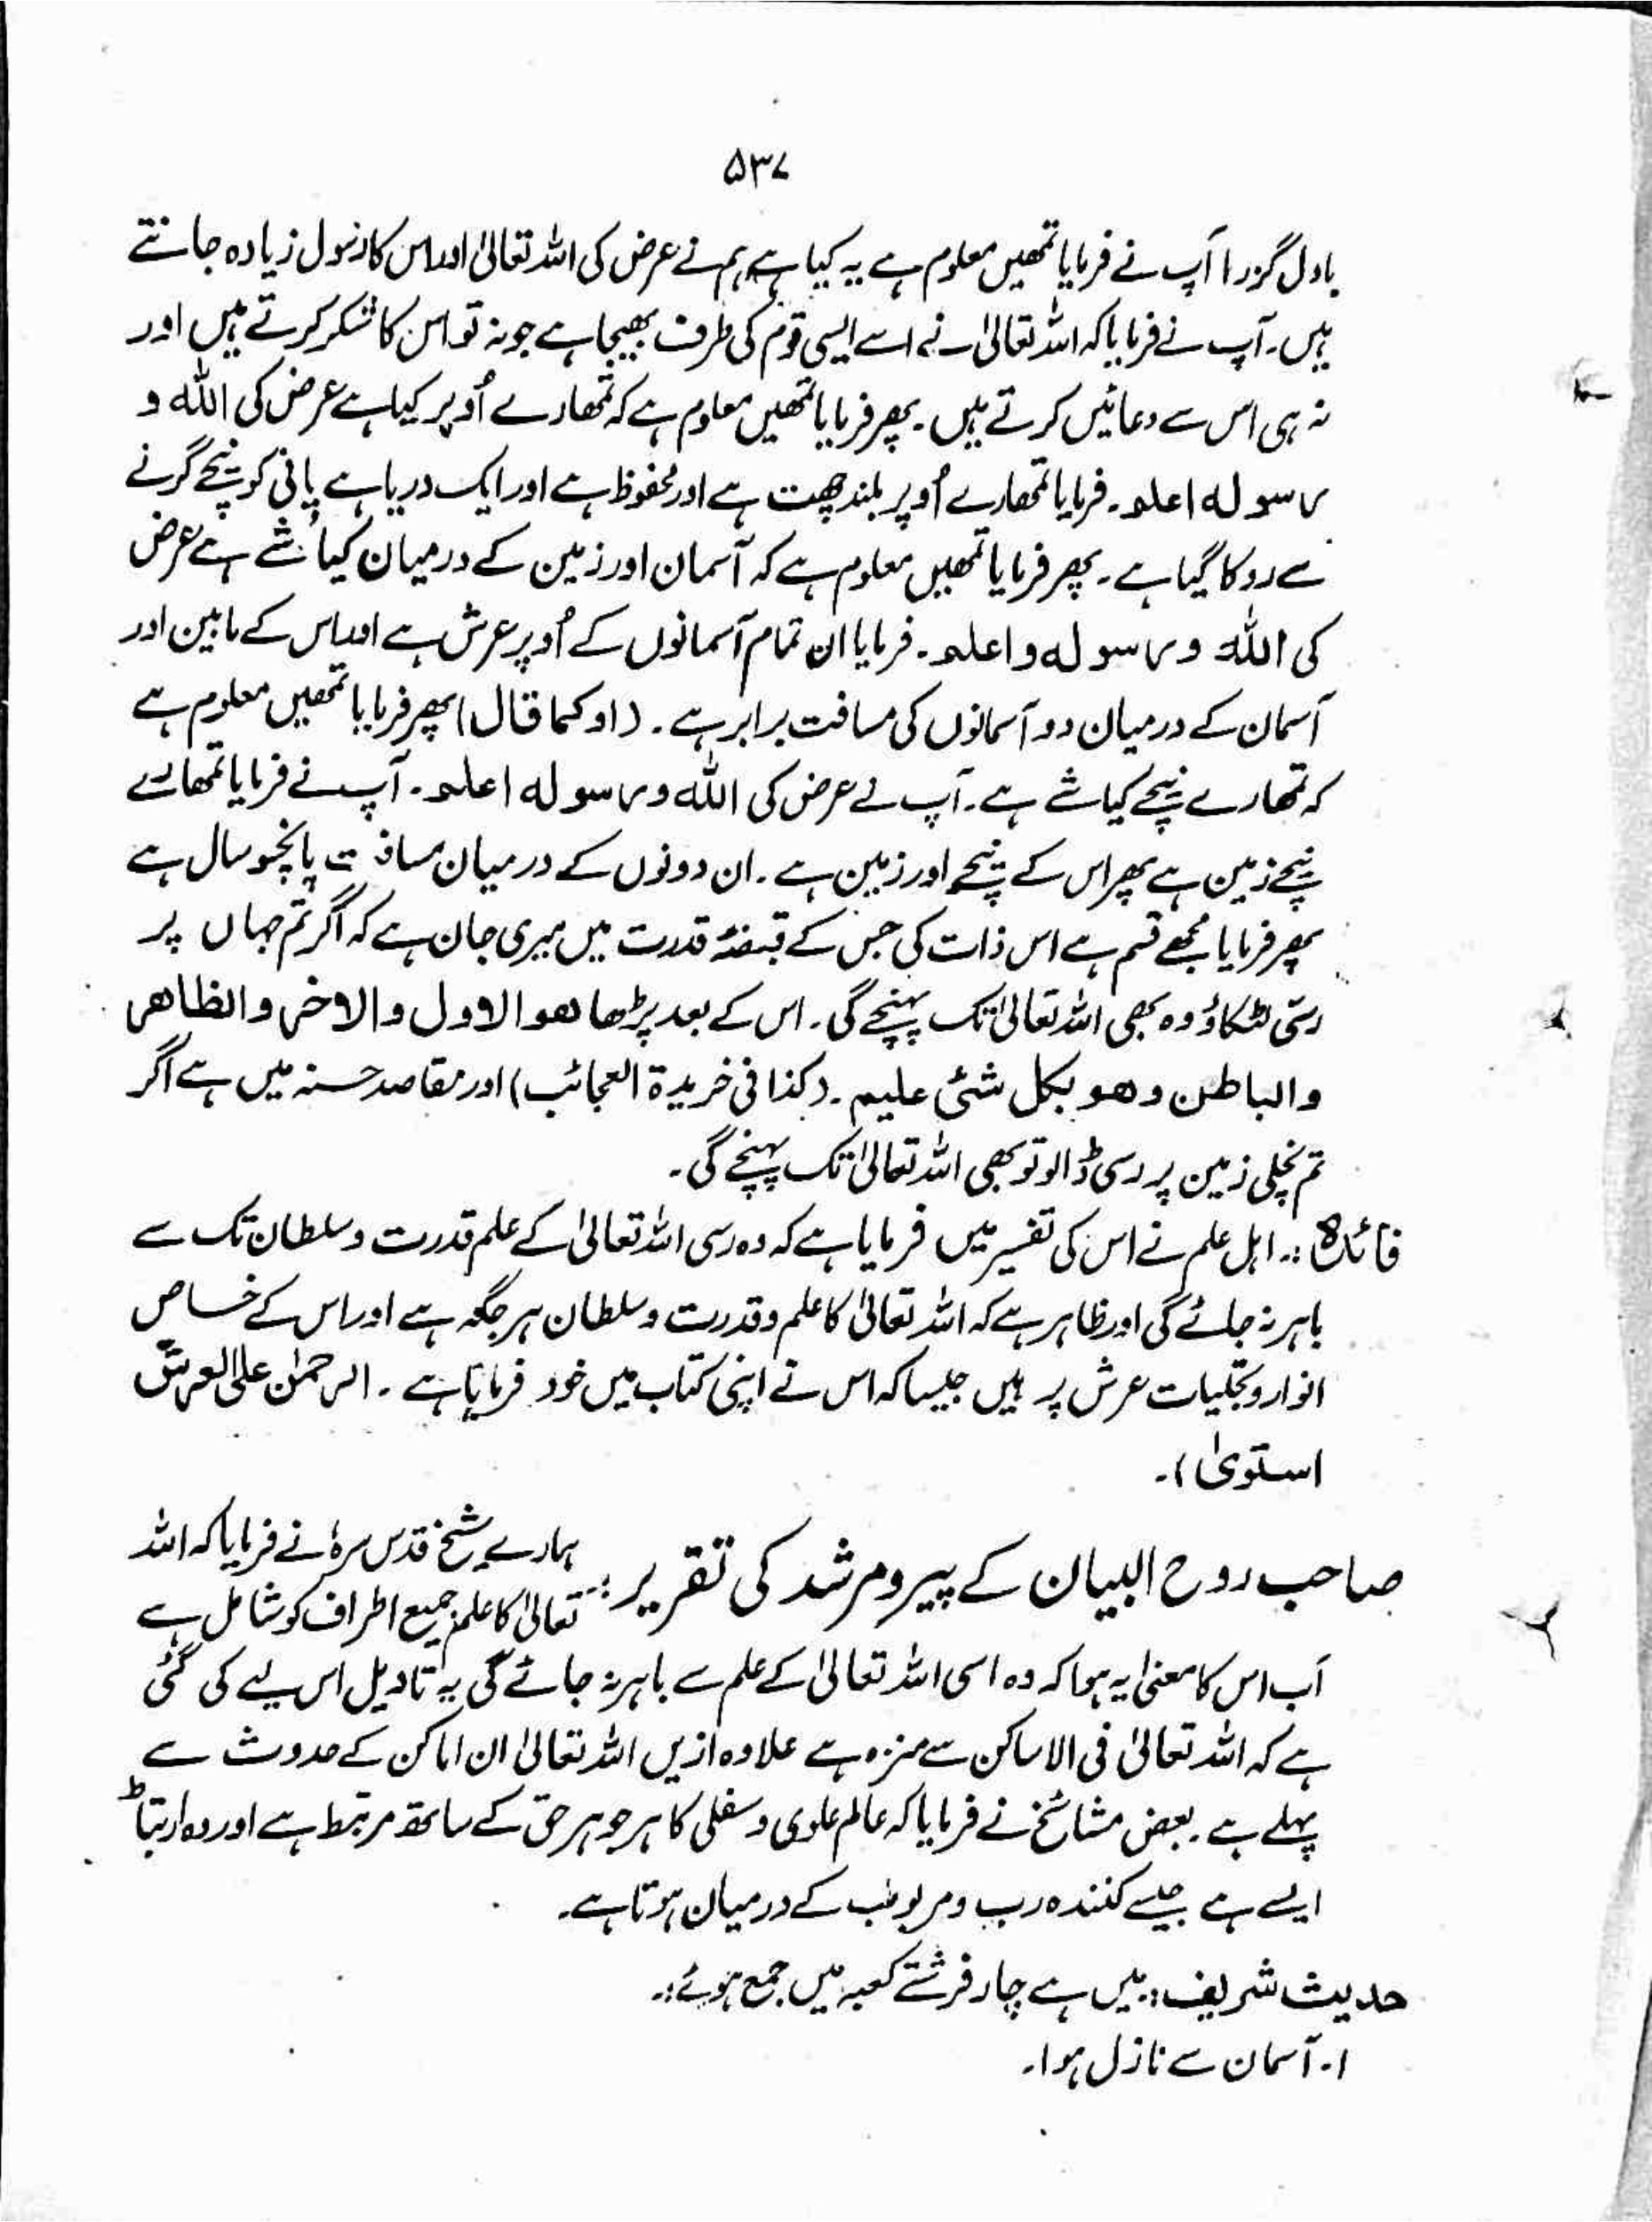 ۵۳۷
بادل گزرا آپ نے فرمایا تمھیں معلوم ہے یہ کیا ہے ہم نے عرض کی اللہ تعالیٰ اور اس کا رسول زیادہ جانتے
ہیں۔ آپ نے فرمایا کہ اللہ تعالیٰ نے اسے ایسی قوم کی طرف بھیجا ہے جو نہ تو اس کا شکر کرتے ہیں اور
نہ ہی اس سے دعائیں کرتے ہیں۔ پھر فرمایا تمھیں معلوم ہے کہ تمھارے اُوپر کیا ہے عرض کی اللہ و
رسولہ اعلم۔ فرمایا تمھارے اُوپر بلند چھت ہے اور محفوظ ہے اور ایک دریا ہے پانی کو نیچے گرنے
سے روکا گیا ہے۔ پھر فرمایا تمھیں معلوم ہے کہ آسمان اور زمین کے درمیان کیا شے ہے عرض
کی اللہ و رسولہ و اعلم۔ فرمایا ان تمام آسمانوں کے اُوپر عرش ہے اور اس کے مابین اور
آسمان کے درمیان دو آسمانوں کی مسافت برابر ہے۔ (او کما قال) پھر فرمایا تمھیں معلوم ہے
کہ تمھارے نیچے کیا شے ہے۔ آپ نے عرض کی اللہ و رسولہ اعلم۔ آپ نے فرمایا تمھارے
نیچے زمین ہے پھر اس کے نیچے اور زمین ہے۔ ان دونوں کے درمیان مسافت پانچسو سال ہے
پھر فرمایا مجھے قسم ہے اس ذات کی جس کے قبضۂ قدرت میں میری جان ہے کہ اگر تم جہاں پر
رسّی لٹکاؤ وہ بھی اللہ تعالیٰ تک پہنچے گی۔ اس کے بعد پڑھا ھو الاول والاخر والظاھر
والباطن وھو بکل شئ علیم۔ (کذا فی خریدۃ العجائب) اور مقاصد حسنہ میں ہے اگر
تم نچلی زمین پر رسی ڈالو تو بھی اللہ تعالیٰ تک پہنچے گی۔
فائدہ :۔ اہل علم نے اس کی تفسیر میں فرمایا ہے کہ وہ رسی اللہ تعالیٰ کے علم قدرت و سلطان تک سے
باہر نہ جائے گی اور ظاہر ہے کہ اللہ تعالیٰ کا علم و قدرت و سلطان ہر جگہ ہے اور اس کے خاص
انوار و تجلیات عرش پر ہیں جیسا کہ اس نے اپنی کتاب میں خود فرمایا ہے۔ الرحمٰن علی العرش
استویٰ)۔
صاحب روح البیان کے پیر و مرشد کی تقریر :۔ ہمارے شیخ قدس سرہٗ نے فرمایا کہ اللہ
تعالیٰ کا علم جمیع اطراف کو شامل ہے
اَب اس کا معنیٰ یہ ہوا کہ وہ اسی اللہ تعالیٰ کے علم سے باہر نہ جائے گی یہ تاویل اس لیے کی گئی
ہے کہ اللہ تعالیٰ فی الاماکن سے منزہ ہے علاوہ ازیں اللہ تعالیٰ ان اماکن کے حدوث سے
پہلے ہے۔ بعض مشائخ نے فرمایا کہ عالم علوی و سفلی کا ہر جوہر حق کے ساتھ مرتبط ہے اور وہ ارتباط
ایسے ہے جیسے کنندہ رب و مربوب کے درمیان ہوتا ہے۔
حدیث شریف :۔ میں ہے چار فرشتے کعبہ میں جمع ہوئے :۔
۱۔ آسمان سے نازل ہوا۔